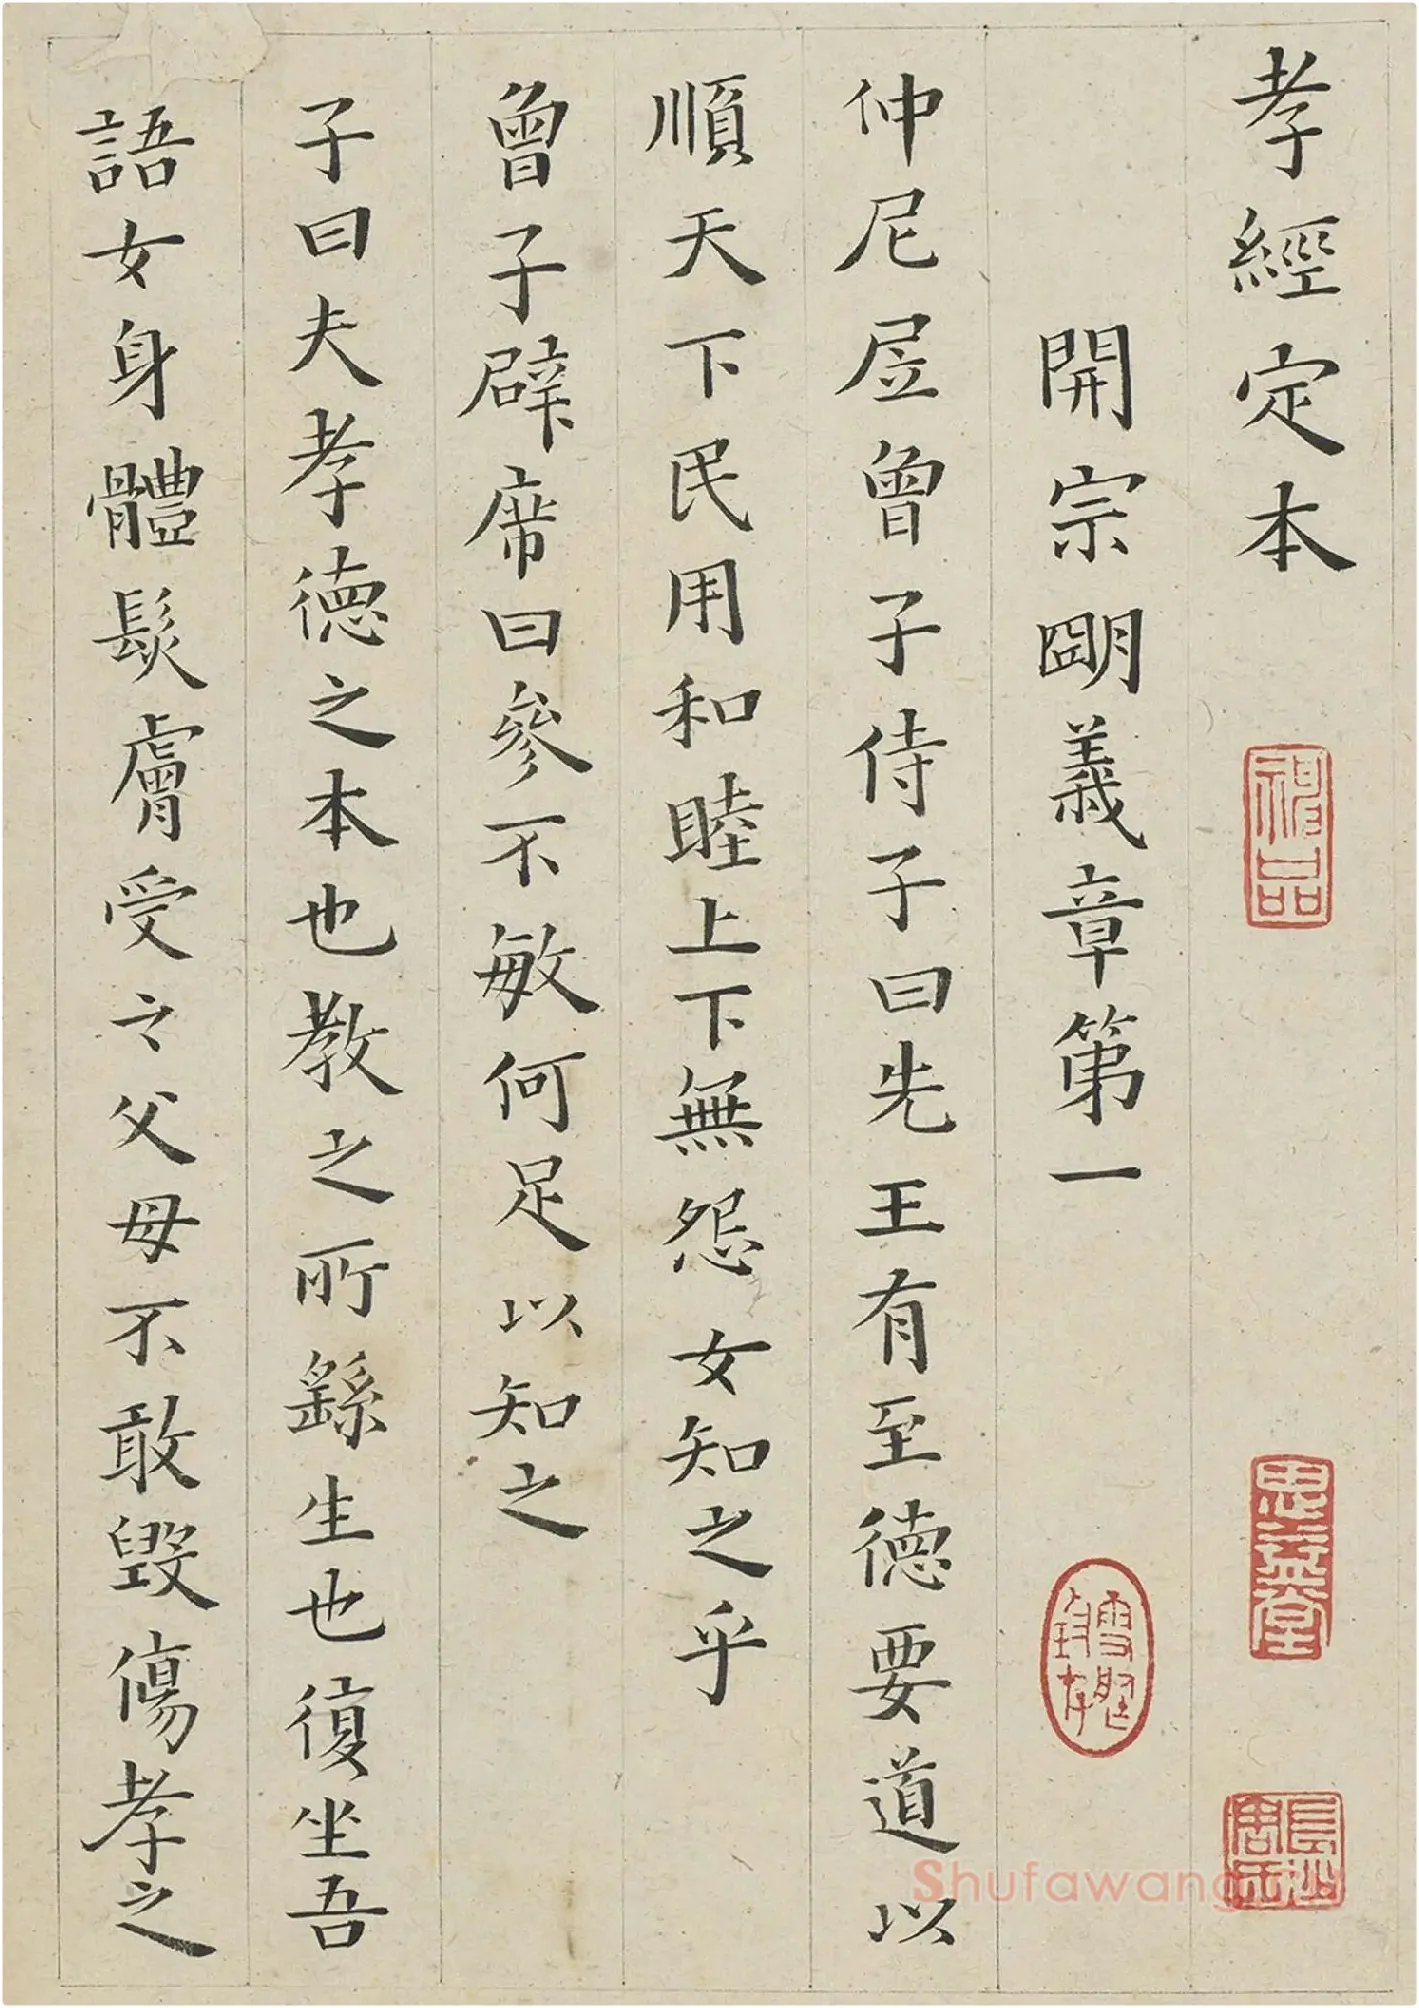 孝經定本
神品
思益堂
長沙周氏
開宗朙義章第一
仲尼凥曾子侍子曰先王有至德要道以
順天下民用和睦上下無怨女知之乎
曾子辟席曰參不敏何足以知之
子曰夫孝德之本也教之所繇生也復坐吾
語女身體髮膚受之父母不敢毀傷孝之
Shufawang